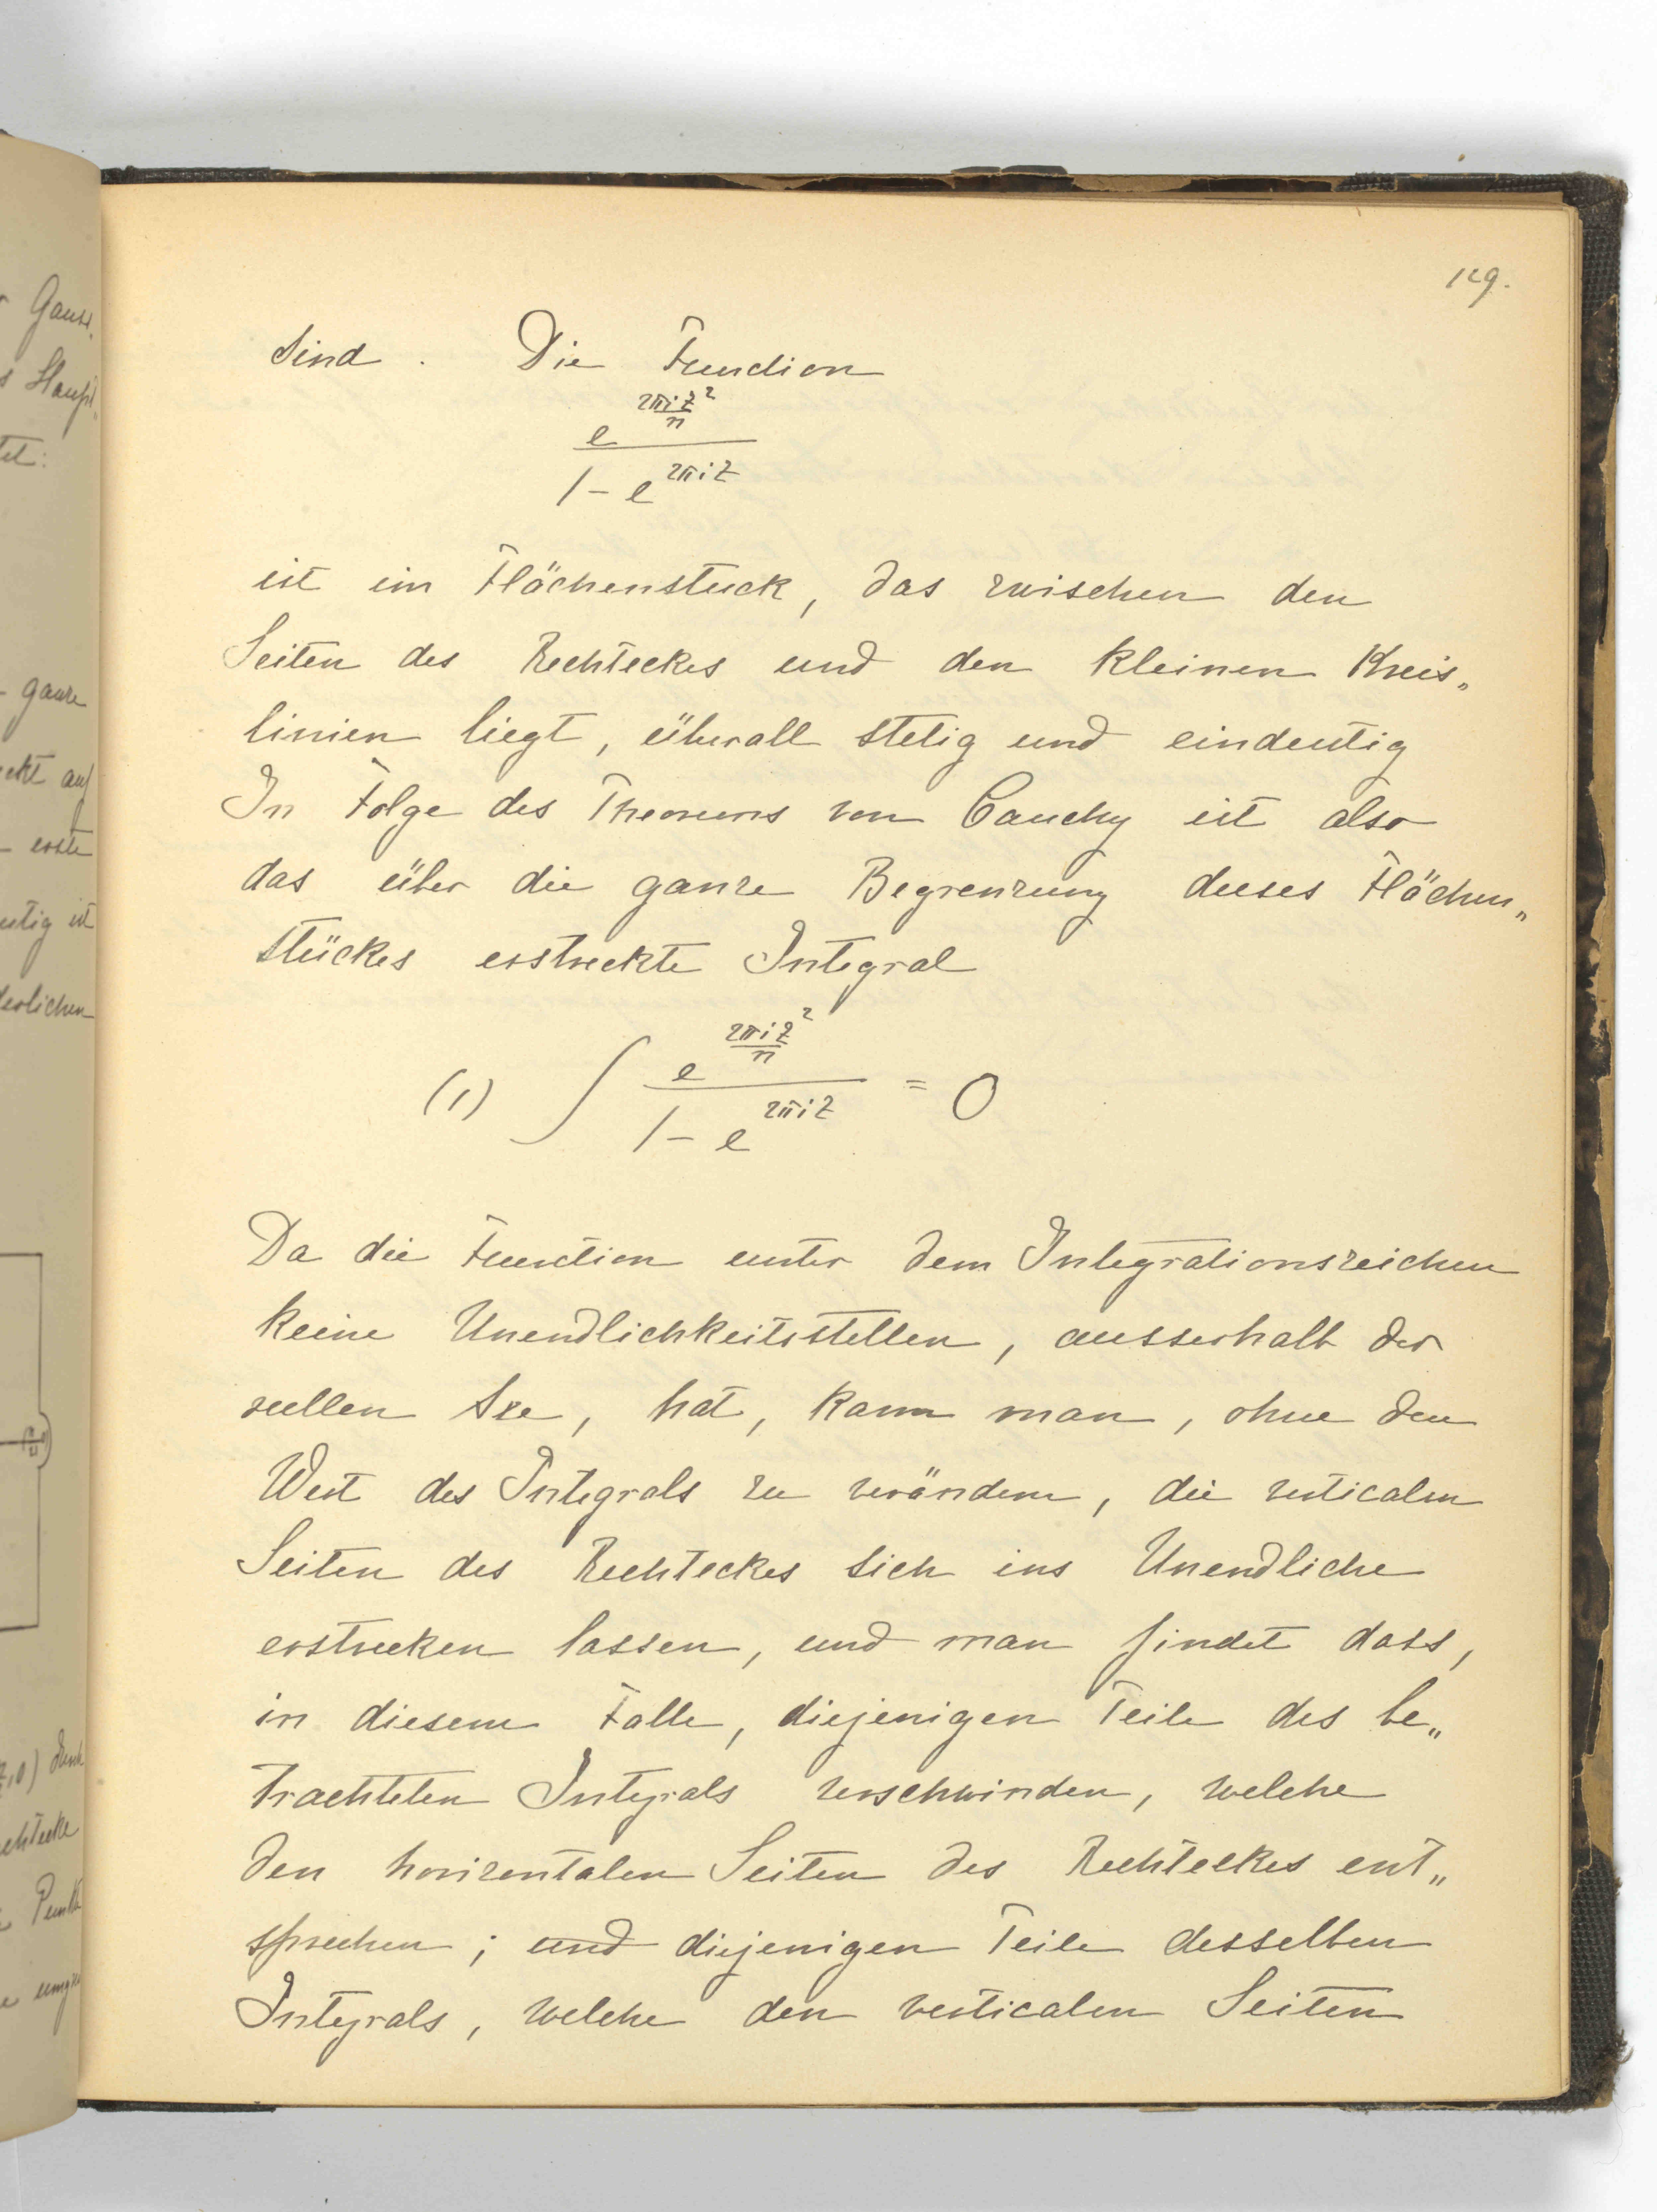 129.
sind. Die Function
\frac{e^{\frac{2\pi i z^2}{n}}}{1 - e^{2\pi i z}}
ist im Flächenstück, das zwischen den
Seiten des Rechteckes und den kleinen Kreis„
linien liegt, überall stetig und eindeutig
In Folge des Theorems von Cauchy ist also
das über die ganze Begrenzung dieses Flächen„
stückes erstreckte Integral
(1) \int \frac{e^{\frac{2\pi i z^2}{n}}}{1 - e^{2\pi i z}} = 0
Da die Function unter dem Integrationszeichen
keine Unendlichkeitsstellen, ausserhalb der
reellen Axe, hat, kann man, ohne den
Wert des Integrals zu verändern, die verticalen
Seiten des Rechteckes sich ins Unendliche
erstrecken lassen, und man findet dass,
in diesem Falle, diejenigen Teile des be„
trachteten Integrals verschwinden, welche
den horizontalen Seiten des Rechteckes ent„
sprechen; und diejenigen Teile desselben
Integrals, welche den verticalen Seiten
Gauss.
Haupt„
tet:
ganze
eckt auf
erste
eutig ist
derlichen
z,0) durch
echtecke
Punkte